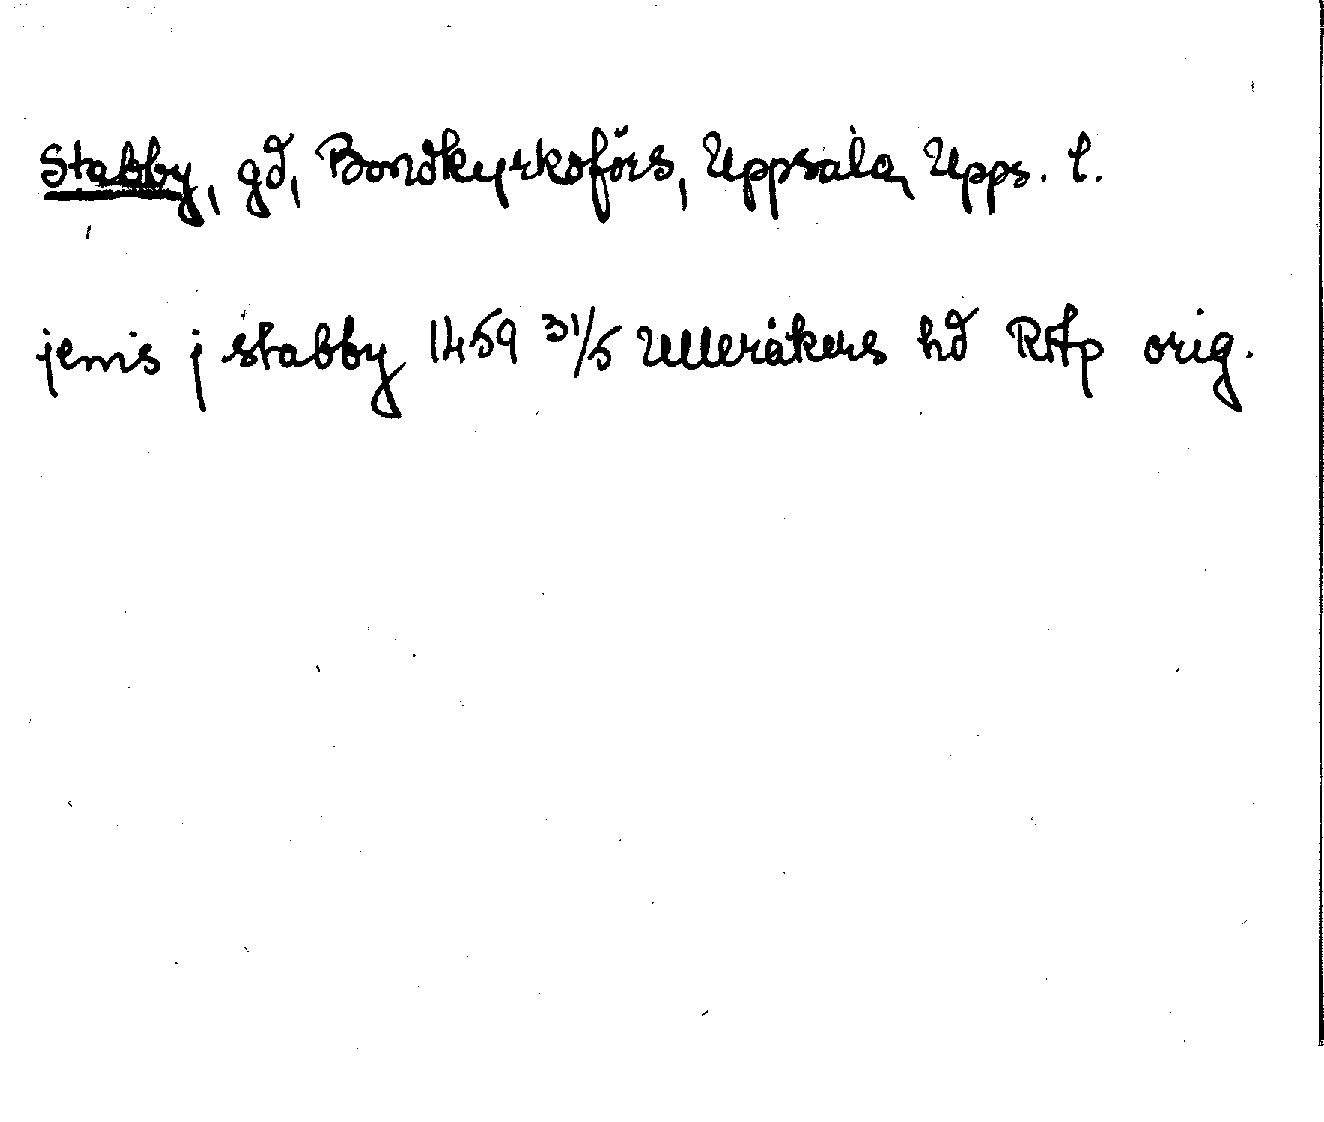 Stabby, gd, Bondkyrkoförs, Uppsala, Upps. l.
jenis j stabby 1459 31/5 Ulleråkers hd RAp orig.